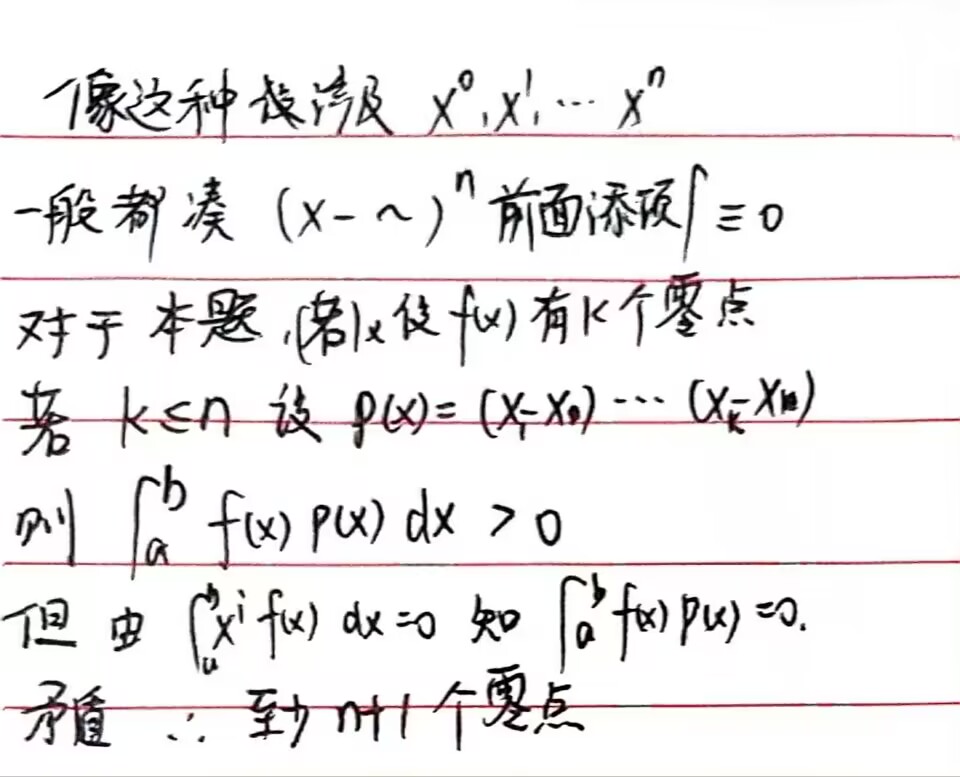 像这种涉及 x⁰, x¹, … xⁿ
一般都凑 (x-~)ⁿ 前面添项∫≡0
对于本题, 设 f(x) 有k个零点
若 k≤n 设 p(x)= (x-x₁) … (x-xₖ)
则 ∫ₐᵇ f(x) p(x) dx > 0
但由 ∫ₐᵇ xⁱ f(x) dx=0 知 ∫ₐᵇ f(x) p(x) =0.
矛盾 ∴ 至少 n+1 个零点